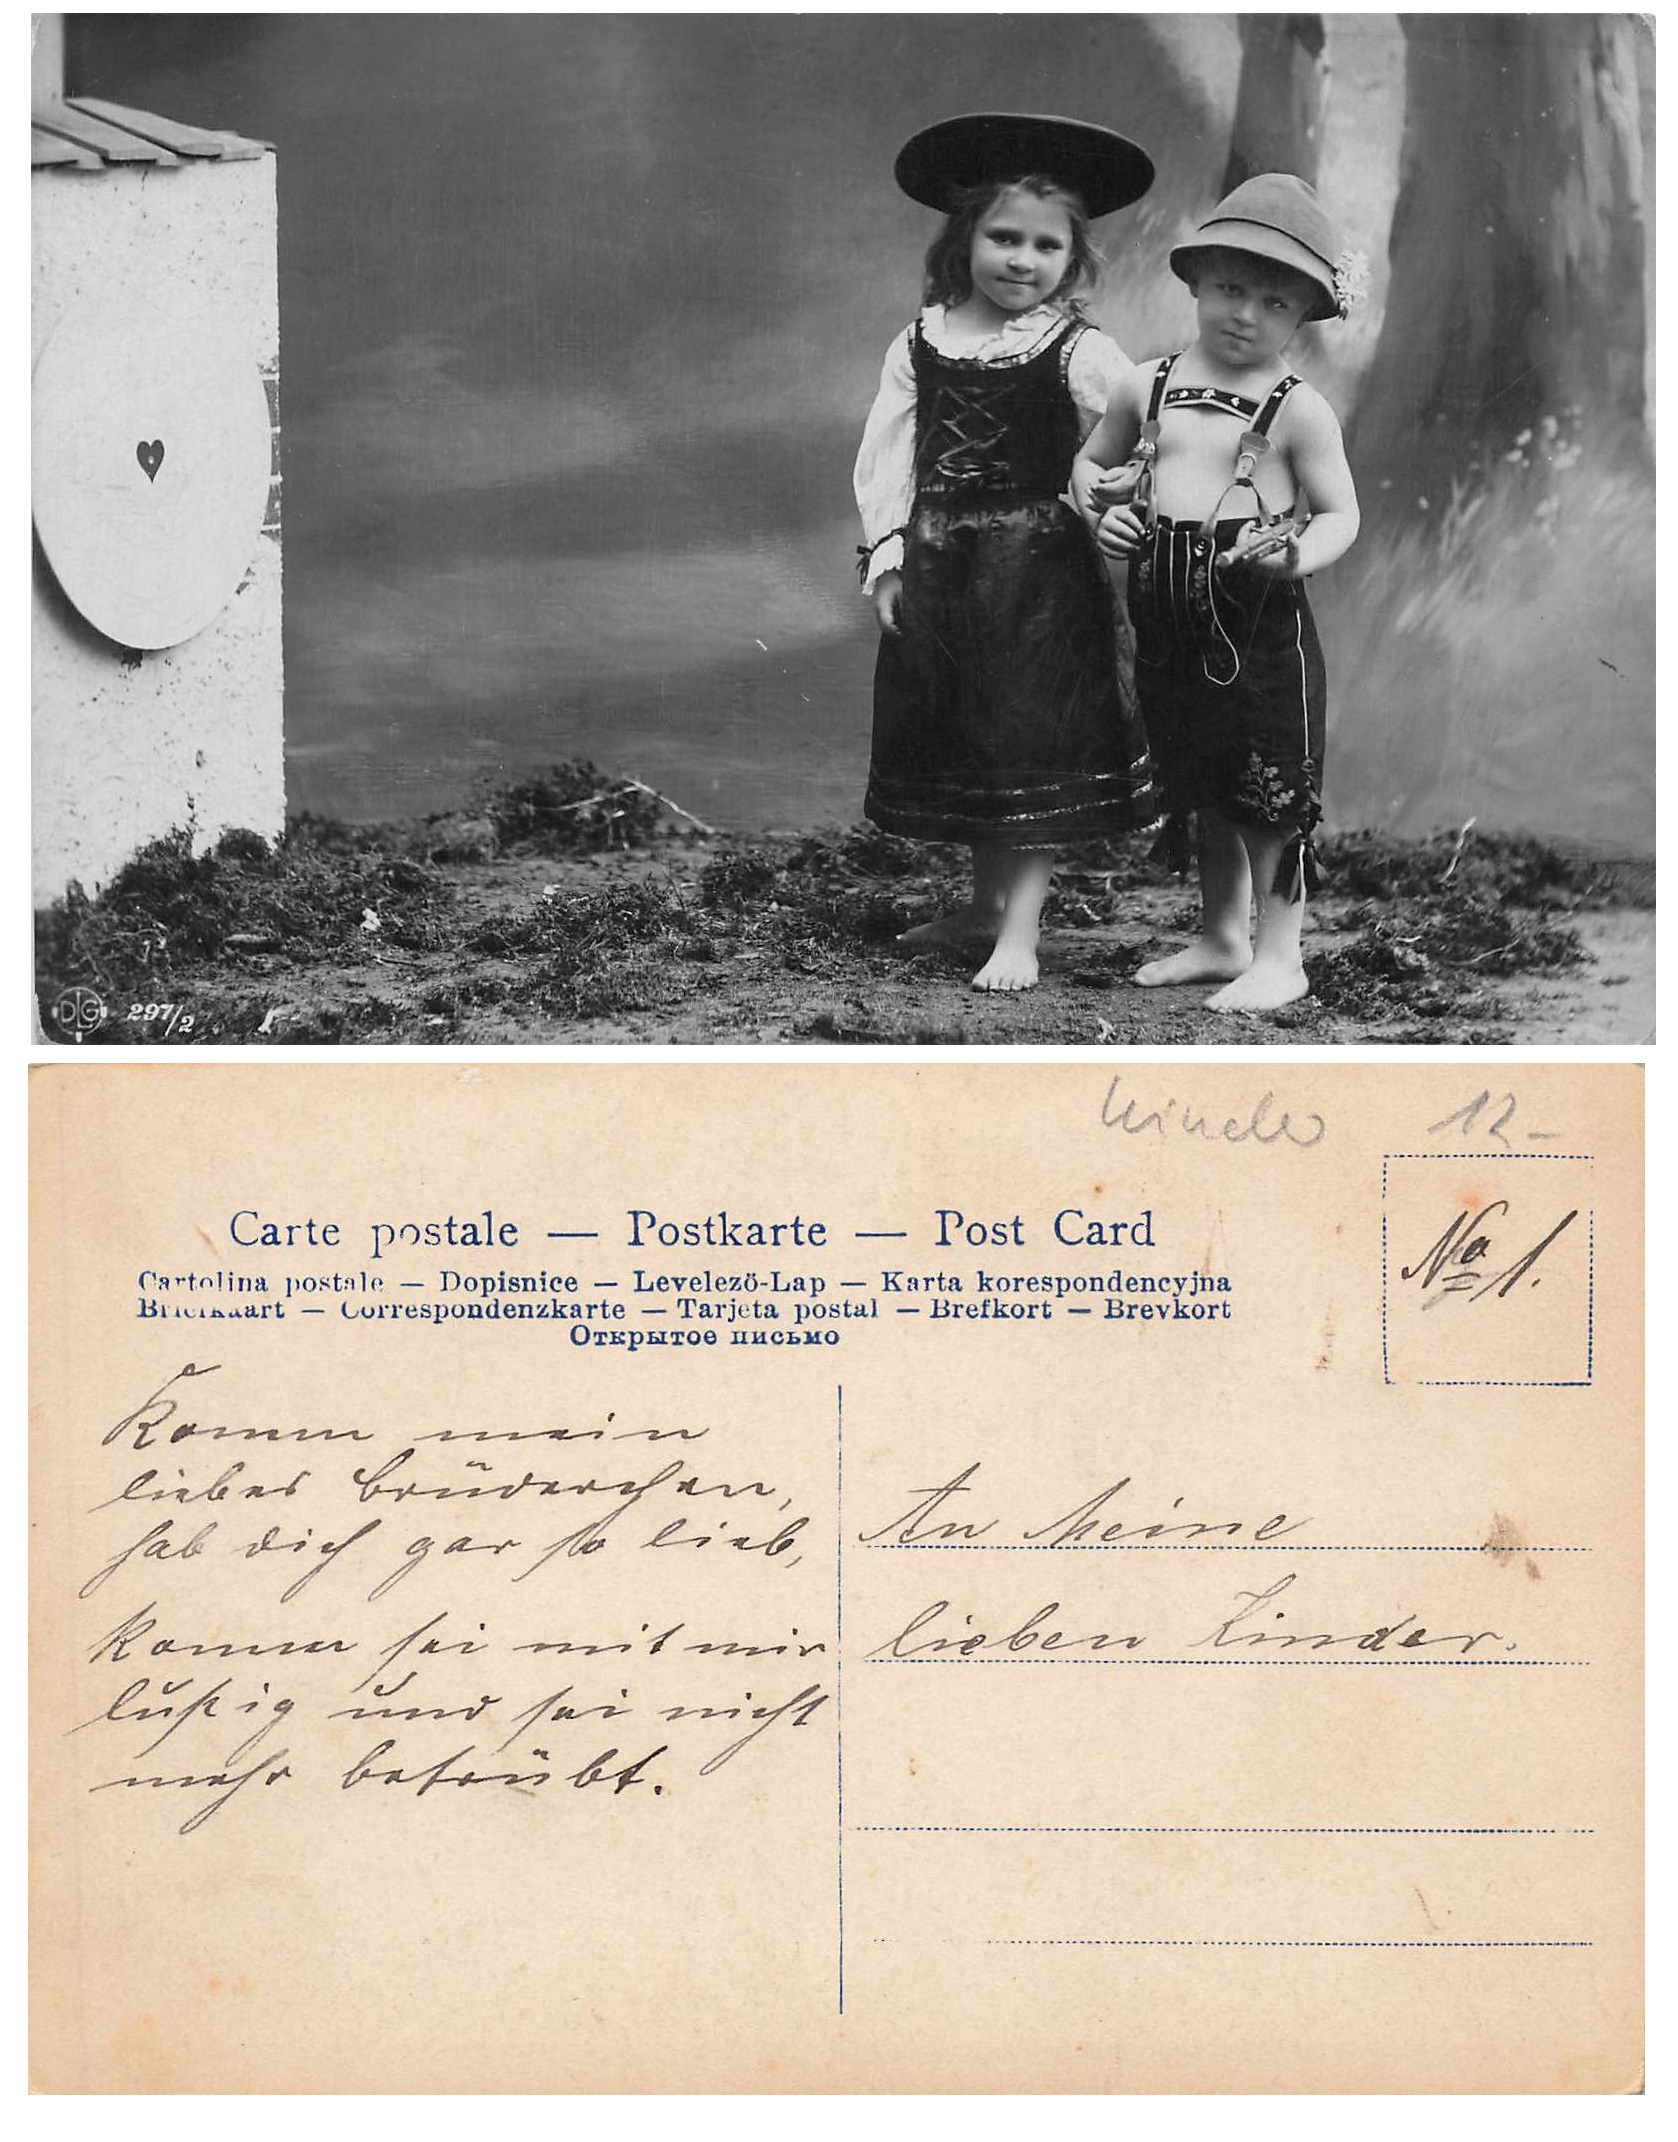 DLG 297/2
Kinder 12-
Carte postale — Postkarte — Post Card
Cartolina postale — Dopisnice — Levelező-Lap — Karta korespondencyjna
Briefkaart — Correspondenzkarte — Tarjeta postal — Brefkort — Brevkort
Открытое письмо
No 1.
Komm mein
liebes Brüderchen,
hab dich gar so lieb,
komm sei mit mir
lustig und sei nicht
mehr betrübt.
An Meine
lieben Kinder.